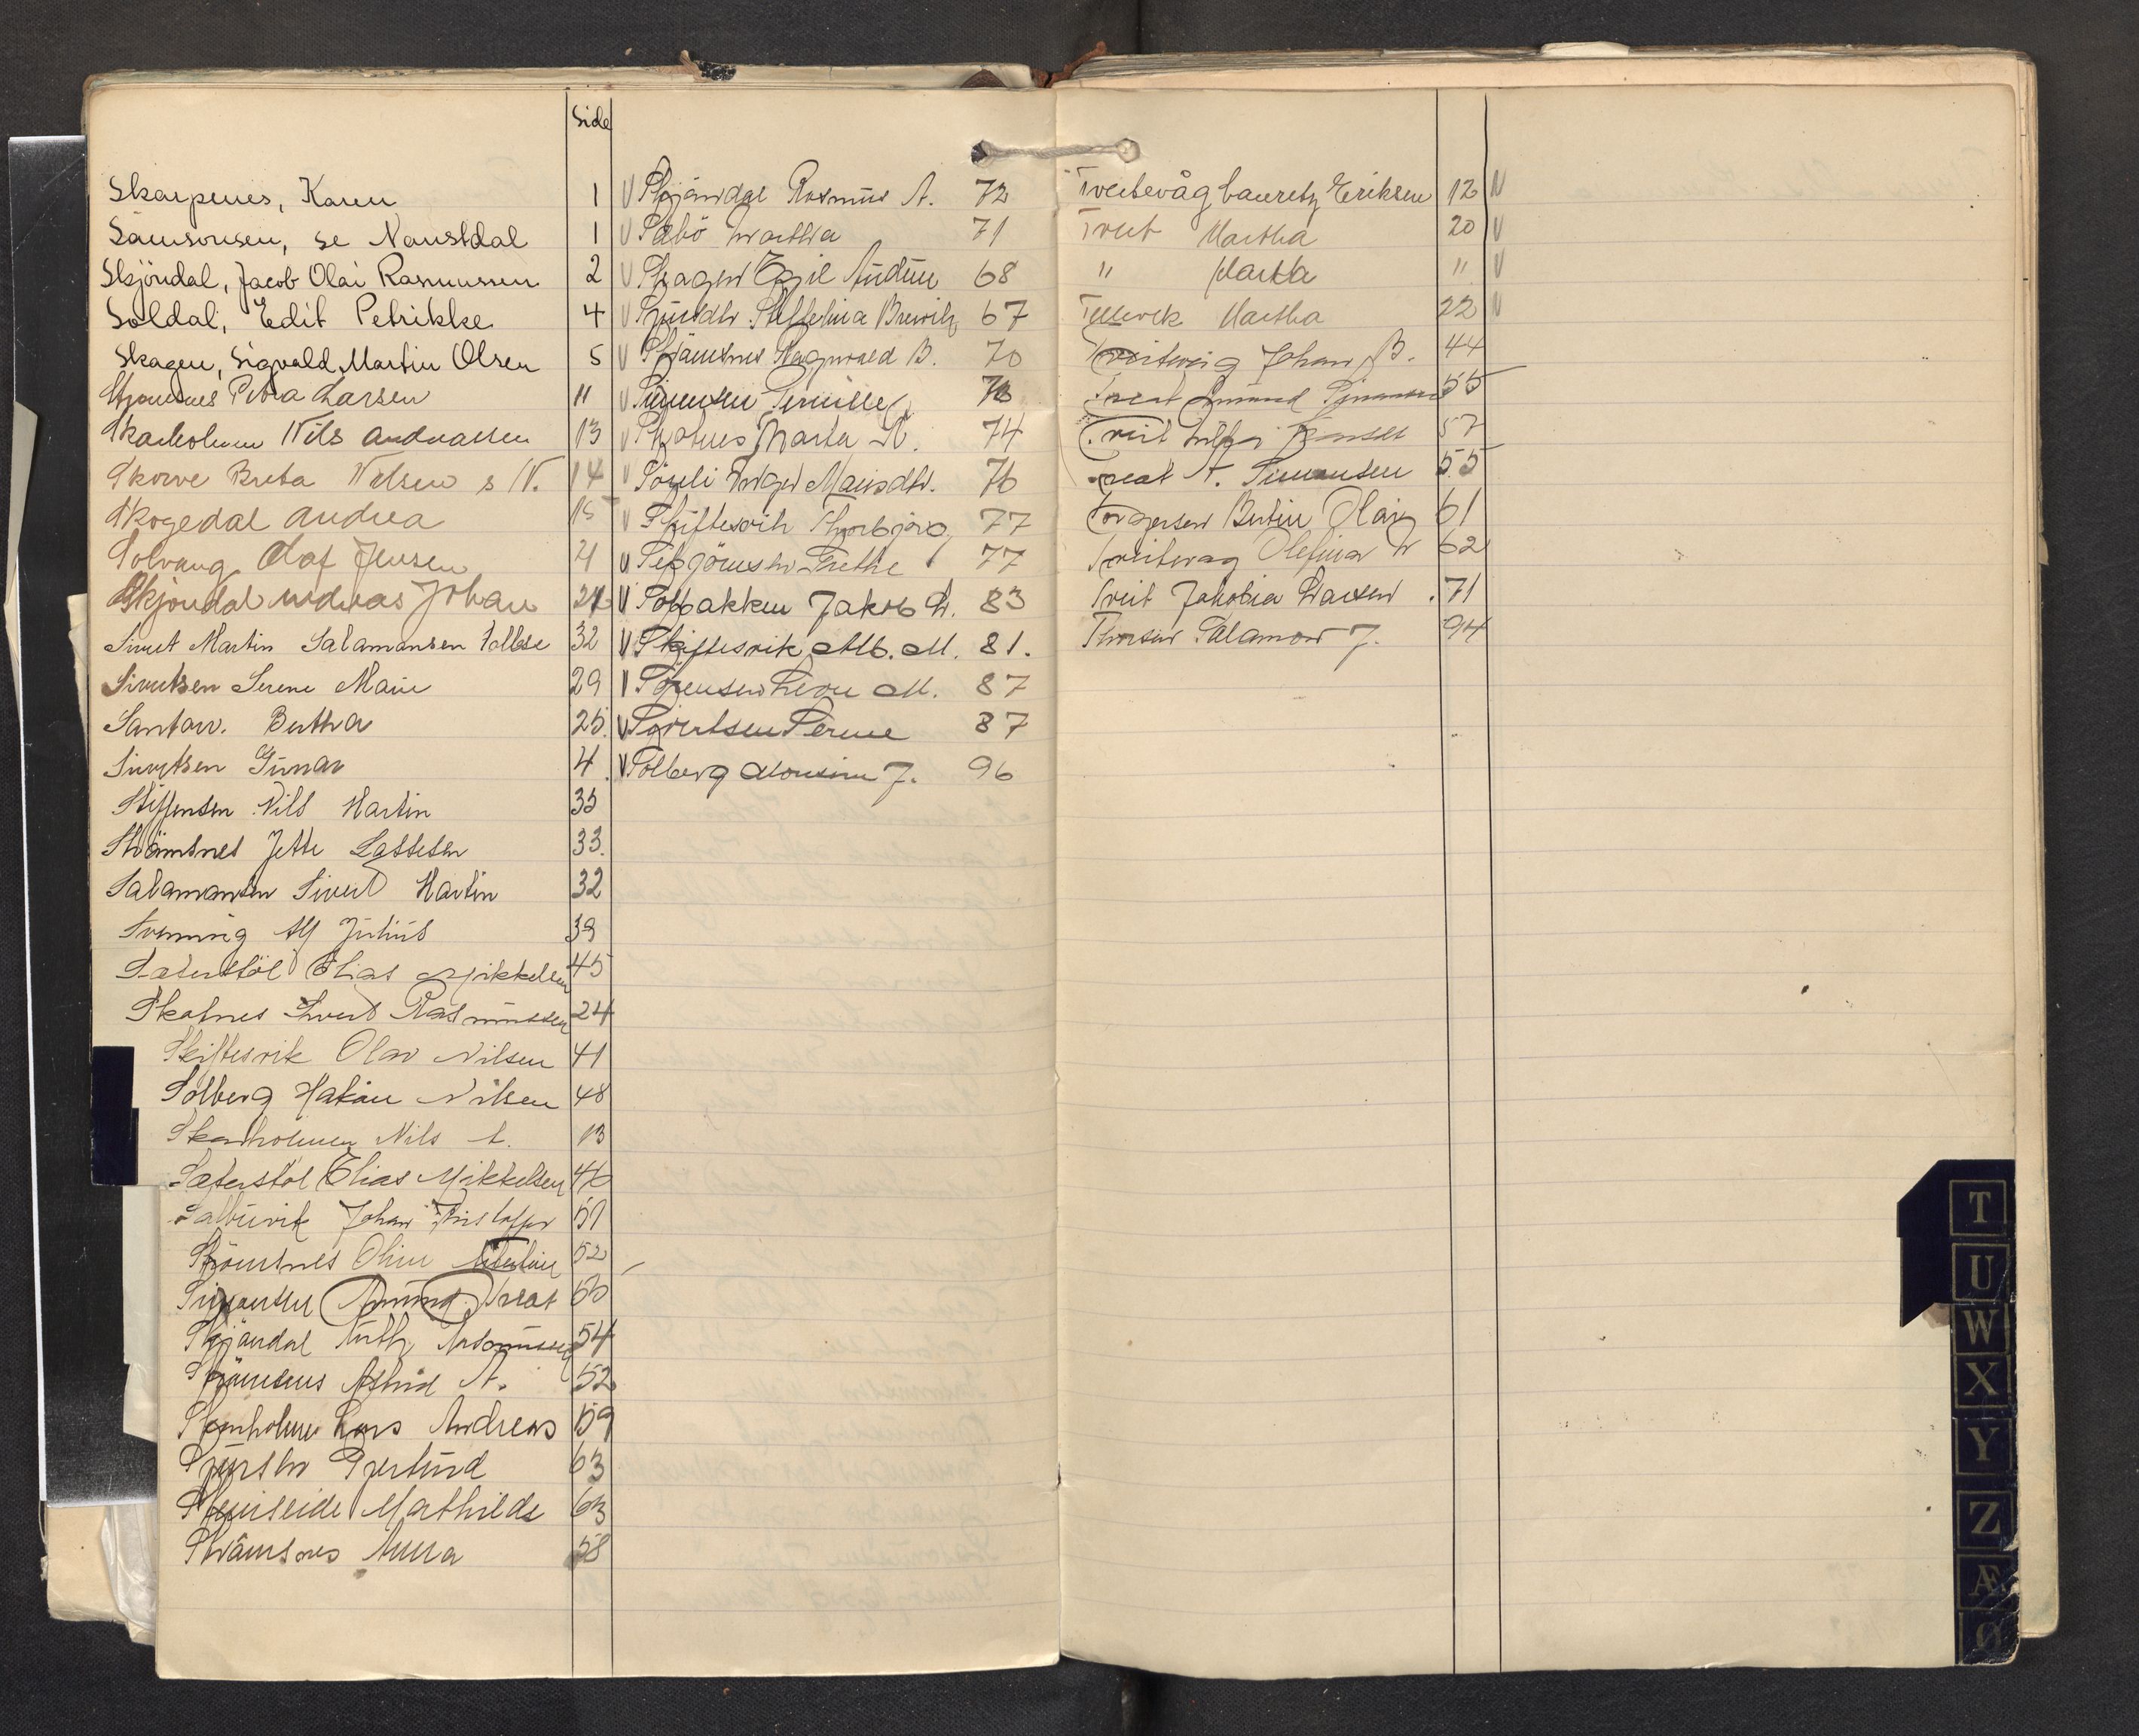 Side
Skarpenes, Karen 1
Samsonsen, se Naustdal 1
Skjöndal, Jacob Olai Rasmussen 2
Soldal, Edit Petrikke 4
Skagen, Sigvald Martin Olsen 5
Petra Larsen 11
Skarholmen Nils Andreassen 13
Skorve Breta Nilsen s N. 14
Skogedal Andrea 15
Solvang Olaf Jensen 21
Skjöndal Andreas Johan
Sivert Martin Salamonsen Tollese 32
Sivertsen Serene Marie 29
Santow. Bertha 25
Sivertsen Gunnar 4
Steffensen Nils Martin 35
Strömsnes Jette Lassesen 33
Salamonsen Sivert Martin 32
Svenning Alf Julius 39
Sæterstöl Elias Mikkelsen 45
Skatnes Sivert Rasmussen 24
Skiftesvik Olav Nilsen 41
Solberg Hakon Nilsen 48
Skarholmen Nils A. 13
Sæterstöl Elias Mikkelsen 46
Salbuvik Johan Kristoffer 51
Strömsnes Oline 52
Simonsen Amund Treat 55
Skjöndal Ruth Rasmussen 54
Strömsnes Astrid A. 52
Skarholmen Lars Andreas 59
Gjertrud 63
Steinseide Mathilde 63
Strömsnes Anna 58
V Skjöndal Rasmus A. 72
V Sæbö Martha 71
V Skagen Egil Audun 68
V Steffelina 67
V Strömsnes Ragnvald B. 70
V Simonsen Pernille 73
V Skatnes Marta R. 74
V Sörli Inger 76
V Skiftesvik Thorbjörg 77
V Grethe 77
V Solbakken Jakob L. 83
V Skiftesvik Alb. M. 81.
V Sörensen M. 87
V Sivertsen Serine 87
V Solberg Monsine J. 96
Tveitevåg Lauretz Eriksen 12 V
Tveit Martha 20 V
" Martha " V
Tellevik Martha 22 V
Tveitevåg Johan B. 44
Treat Amund Simonsen 55
Tveit 57
Treat A. Simonsen 55
Torgersen Bertin Olai 61
Tveitevag Olefina 62
Tveit Jakobia Larsen 71
Thorsen Salamon J. 94
T
U
W
X
Y
Z
Æ
Ø